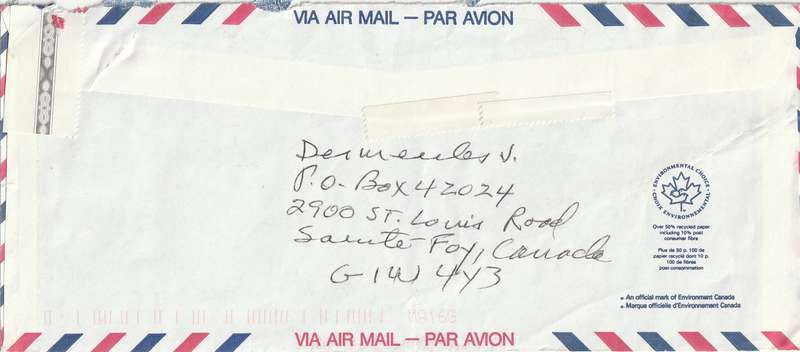 VIA AIR MAIL — PAR AVION
P.O. Box 42024
2900 ST. Louis Road
Sainte Foy, Canada
G1W 4Y3
ENVIRONMENTAL CHOICE
CHOIX ENVIRONNEMENTAL
Over 50% recycled paper
including 10% post
consumer fibre
Plus de 50 p. 100 de
papier recyclé dont 10 p.
100 de fibres
post-consommation
An official mark of Environment Canada
Marque officielle d'Environnement Canada
VIA AIR MAIL — PAR AVION